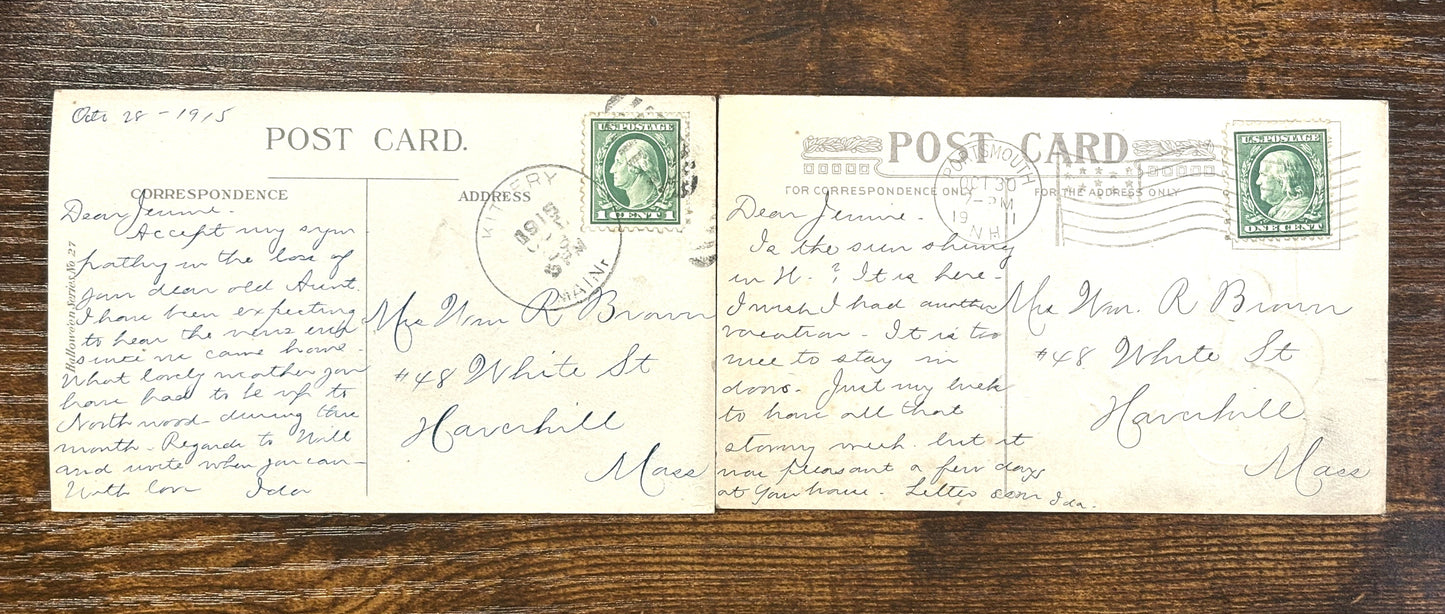 Oct 28 - 1915
POST CARD.
CORRESPONDENCE
ADDRESS
Halloween Series No 27
U.S. POSTAGE
1 CENT 1
KITTERY
1915
MAINE
Dear Jennie -
Accept my sym
pathy in the loss of
your dear old Aunt.
I have been expecting
to hear the news ever
since we came home.
What lovely weather you
have had to be up to
Northwood - during this
month - Regards to Will
and write when you can -
With love Ida
Mrs Wm R Brown
#48 White St
Haverhill
Mass
POST CARD
FOR CORRESPONDENCE ONLY
FOR THE ADDRESS ONLY
PORTSMOUTH
OCT 30
7 - PM
1911
N.H.
U.S. POSTAGE
ONE CENT
Dear Jennie -
Is the sun shining
in H. ? It is here -
I wish I had another
vacation - It is too
nice to stay in
doors - Just my luck
to have all that
stormy week - but it
was pleasant a few days
at your house - Letter soon Ida.
Mrs Wm. R Brown
#48 White St
Haverhill
Mass